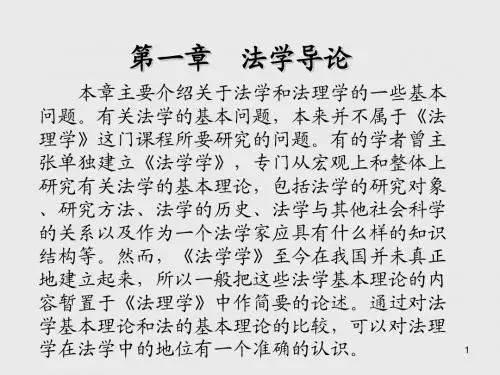 第一章 法学导论
本章主要介绍关于法学和法理学的一些基本
问题。有关法学的基本问题，本来并不属于《法
理学》这门课程所要研究的问题。有的学者曾主
张单独建立《法学学》，专门从宏观上和整体上
研究有关法学的基本理论，包括法学的研究对象
、研究方法、法学的历史、法学与其他社会科学
的关系以及作为一个法学家应具有什么样的知识
结构等。然而，《法学学》至今在我国并未真正
地建立起来，所以一般把这些法学基本理论的内
容暂置于《法理学》中作简要的论述。通过对法
学基本理论和法的基本理论的比较，可以对法理
学在法学中的地位有一个准确的认识。
1